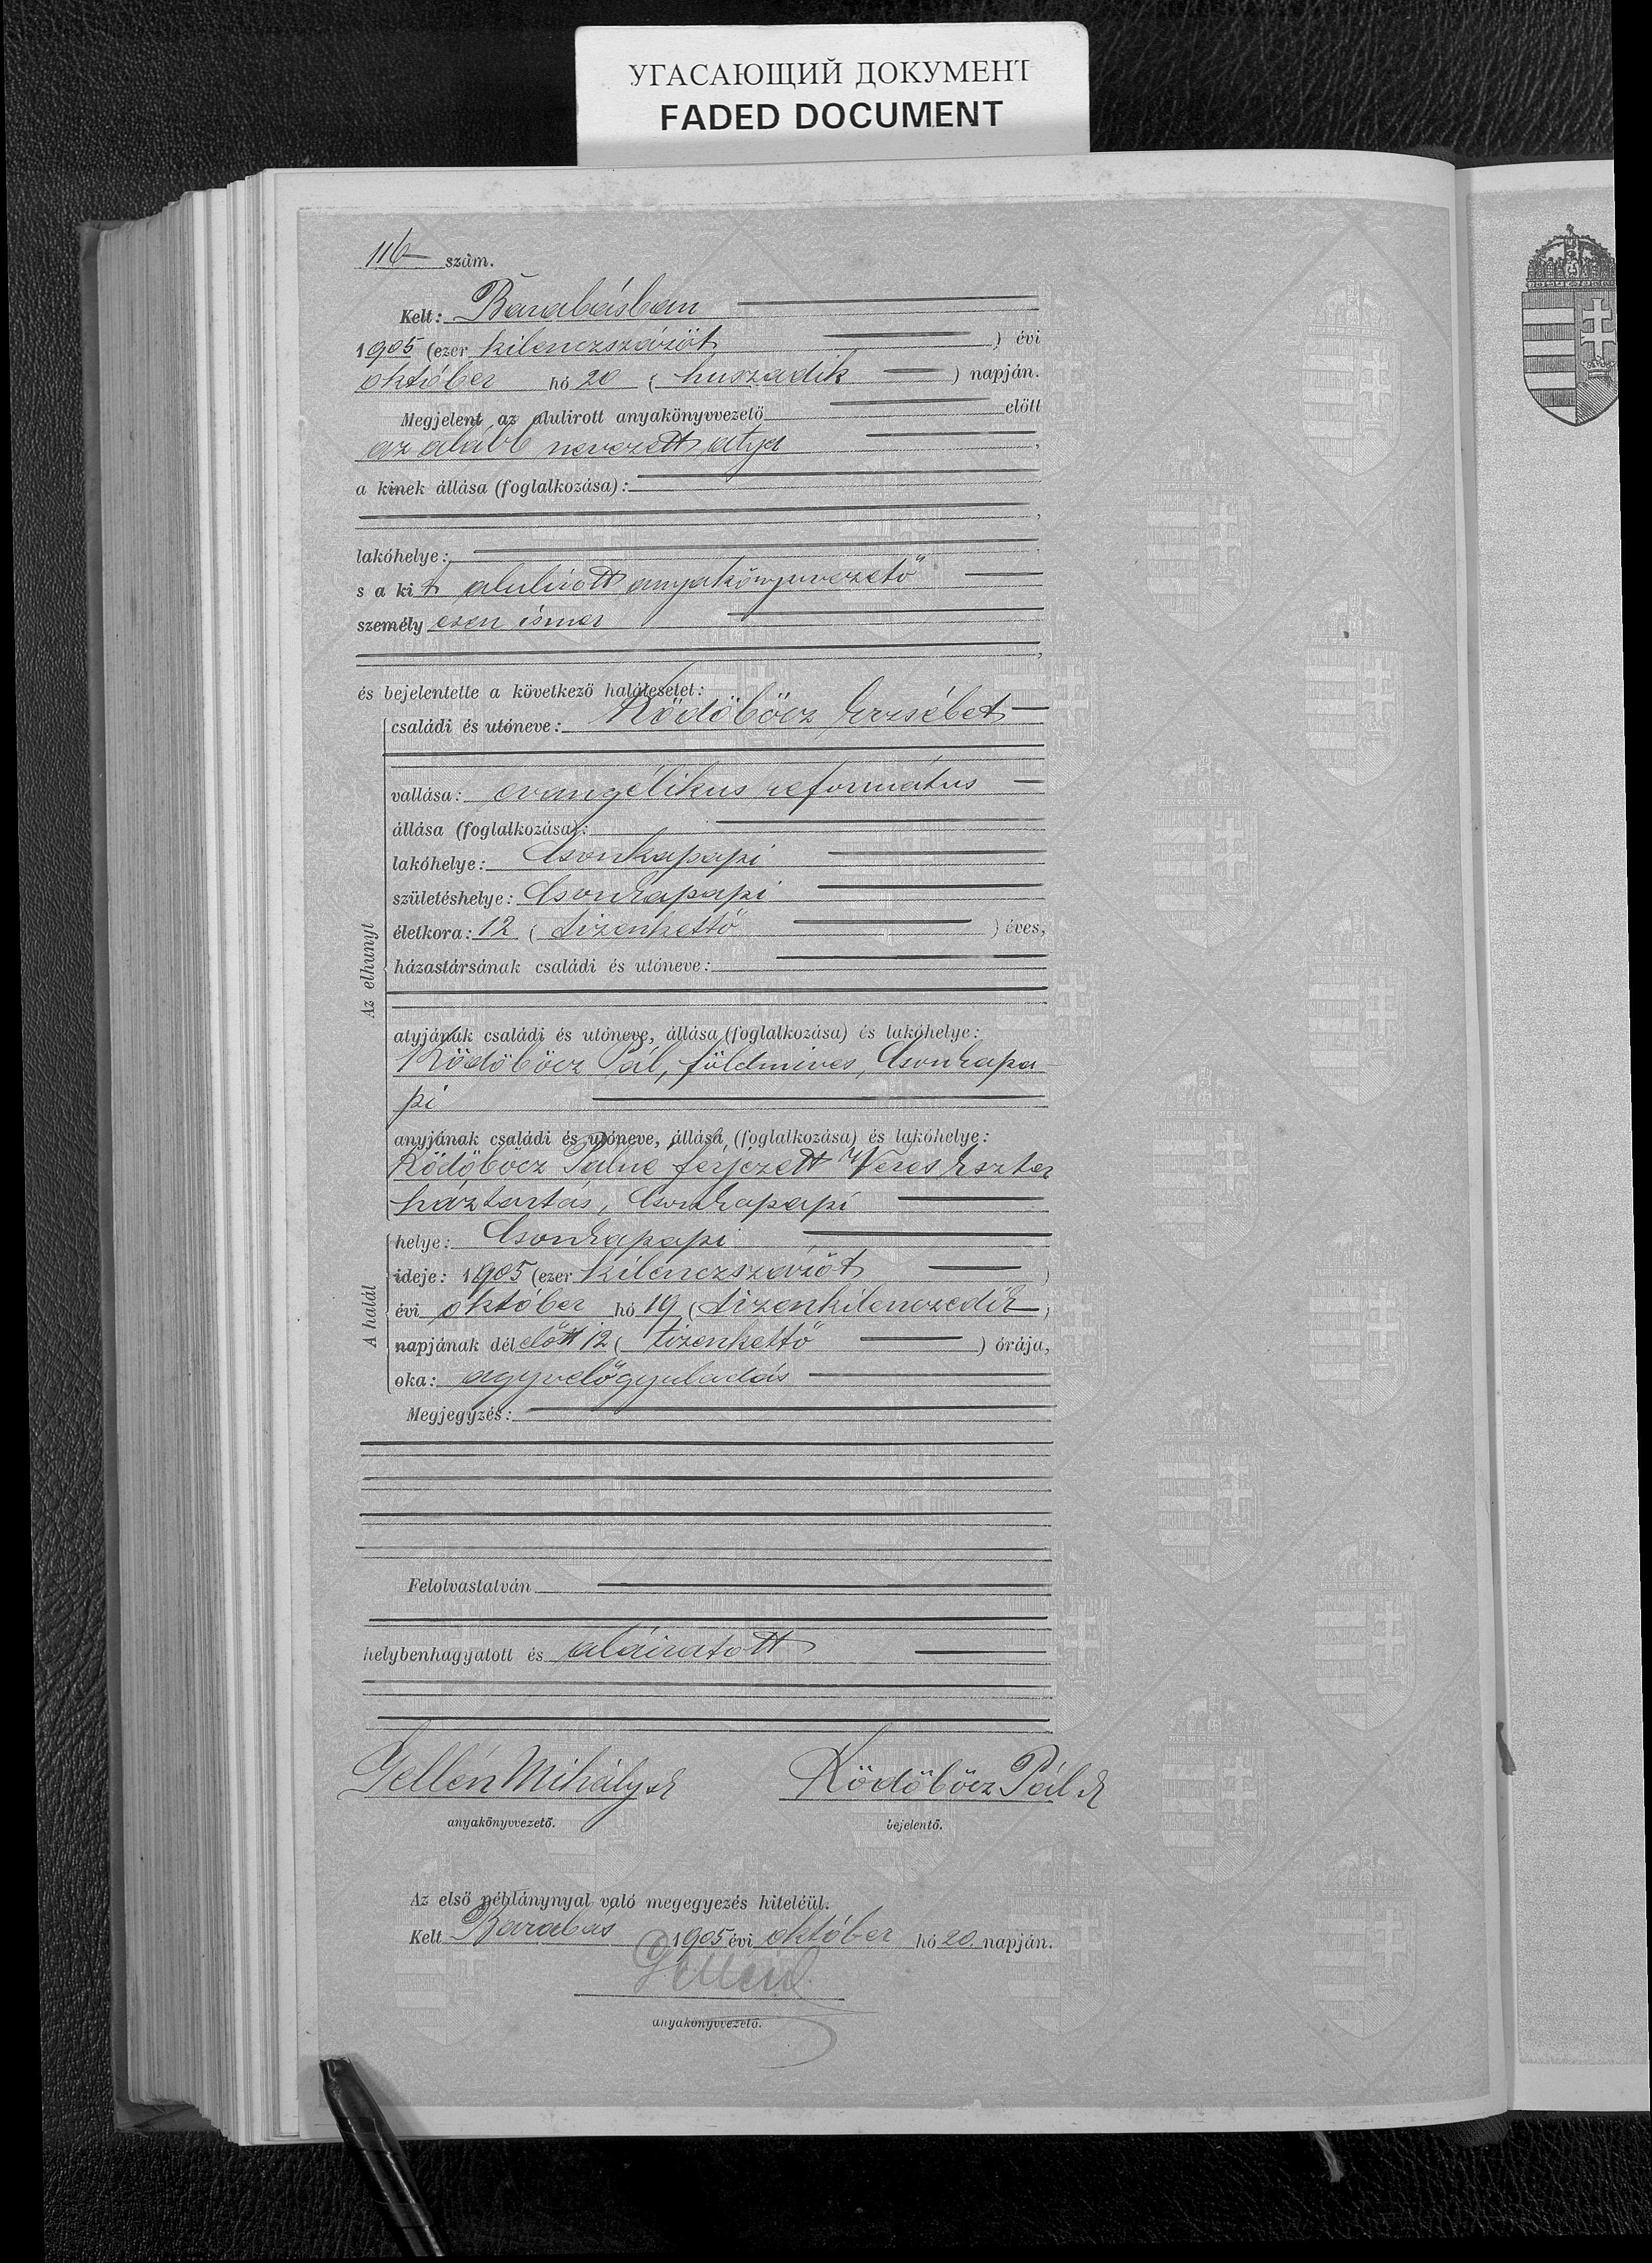 УГАСАЮЩИЙ ДОКУМЕНТ
FADED DOCUMENT
116 szám.
Kelt: Barabásban
1905 (ezer kilenczszázöt) évi
október hó 20 (huszadik) napján.
Megjelent az alulirott anyakönyvvezető előtt
az alább nevezett atya,
a kinek állása (foglalkozása):
lakóhelye:
s a kit alulirott anyakönyvvezető
személyesen ismer
és bejelentette a következő halálesetet:
Az elhunyt
családi és utóneve: Ködöböcz Erzsébet
vallása: evangélikus református
állása (foglalkozása):
lakóhelye: Csonkapapi
születéshelye: Csonkapapi
életkora: 12 (tizenkettő) éves,
házastársának családi és utóneve:
atyjának családi és utóneve, állása (foglalkozása) és lakóhelye:
Ködöböcz Pál, földmives, Csonkapa-
pi
anyjának családi és utóneve, állása (foglalkozása) és lakóhelye:
Ködöböcz Pálné férjezett Veres Eszter
háztartás, Csonkapapi
A halál
helye: Csonkapapi
ideje: 1905 (ezer kilenczszázöt)
évi október hó 19 (tizenkilenczedik)
napjának délelőtt 12 (tizenkettő) órája,
oka: agyvelőgyuladás
Megjegyzés:
Felolvastatván
helybenhagyatott és aláiratott
Gellén Mihály sk Ködöböcz Pál sk
anyakönyvvezető. bejelentő.
Az első példánynyal való megegyezés hiteléül.
Kelt Barabás 1905 évi október hó 20. napján.
Gellén
anyakönyvvezető.